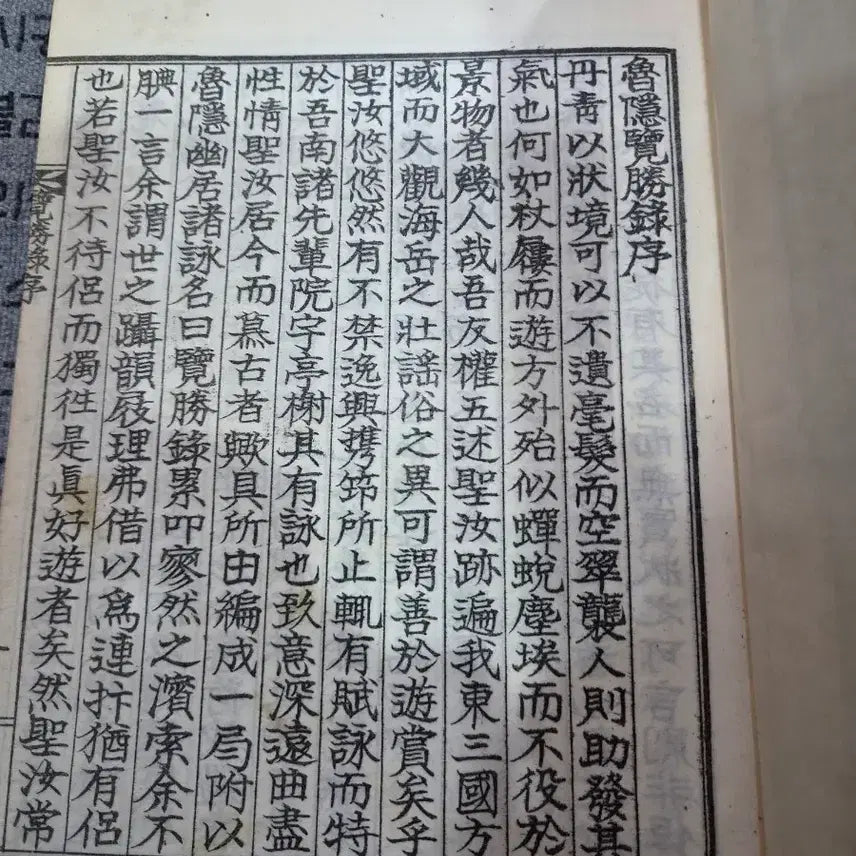 魯隱覽勝錄序
丹靑以狀境可以不遺毫髮而空翠襲人則助發其
氣也何如杖屨而遊方外殆似蟬蛻塵埃而不役於
景物者幾人哉吾友權五述聖汝跡遍我東三國方
域而大觀海岳之壯謠俗之異可謂善於遊賞矣乎
聖汝悠悠然有不禁逸興携笻所止輒有賦詠而特
於吾南諸先輩院宇亭榭其有詠也致意深遠曲盡
性情聖汝居今而慕古者歟具所由編成一局附以
魯隱幽居諸詠名曰覽勝錄累叩寥然之濱索余不
腆一言余謂世之躡韻屐理弗借以爲連抃猶有侶
也若聖汝不待侶而獨徃是眞好遊者矣然聖汝常
覽勝錄序